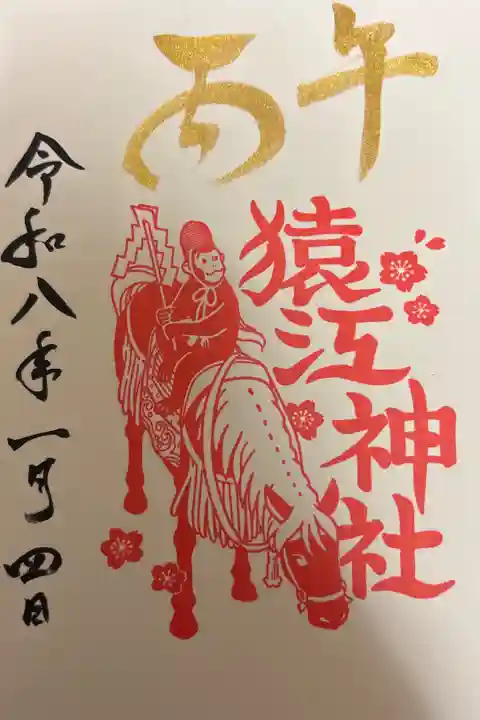 丙午
猿江神社
令和八年一月四日